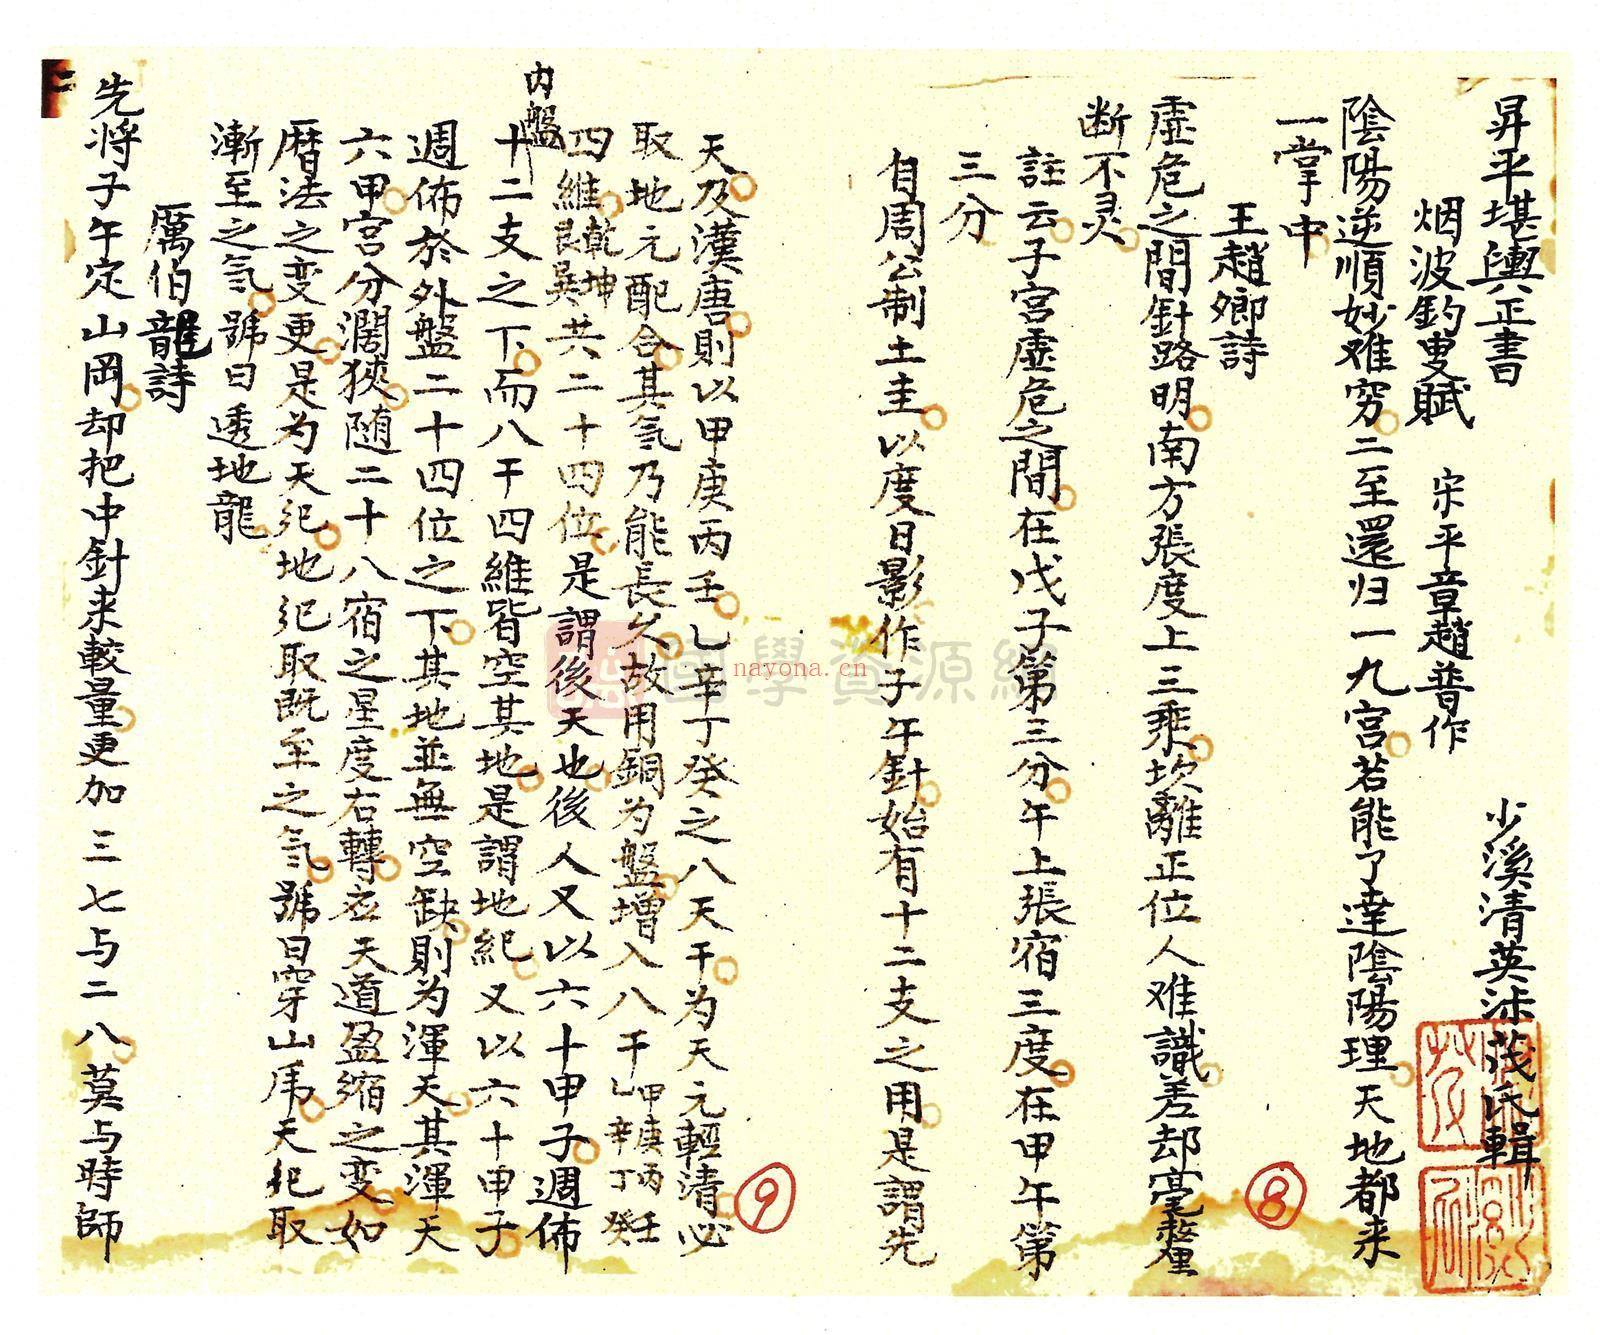 昇平堪輿正書
少溪清英沗茂氏輯
烟波釣叟賦 宋平章趙普作
陰陽逆順妙难穷二至還归一九宮若能了達陰陽理天地都来
一掌中
王趙卿詩
虛危之間針路明南方張度上三乘坎離正位人难識差却毫釐
断不灵
註云子宮虛危之間在戊子第三分午上張宿三度在甲午第
三分
自周公制土圭以度日影作子午針始有十二支之用是謂先
8
天及漢唐則以甲庚丙壬乙辛丁癸之八天干为天元輕清必
取地元配合其氣乃能長久故用銅为盤增入八干甲庚丙壬乙辛丁癸
四維乾坤艮巽共二十四位是謂後天也後人又以六十甲子週佈
内盤
十二支之下而八干四維皆空其地是謂地紀又以六十甲子
週佈於外盤二十四位之下其地並無空缺則为渾天其渾天
六甲宮分濶狹随二十八宿之星度右轉应天道盈縮之变如
曆法之变更是为天紀地紀取既至之氣號曰穿山虎天紀取
漸至之氣號曰透地龍
厲伯龍詩
先将子午定山岡却把中針来較量更加三七与二八莫与時師
9
國學資源網
nayona.cn